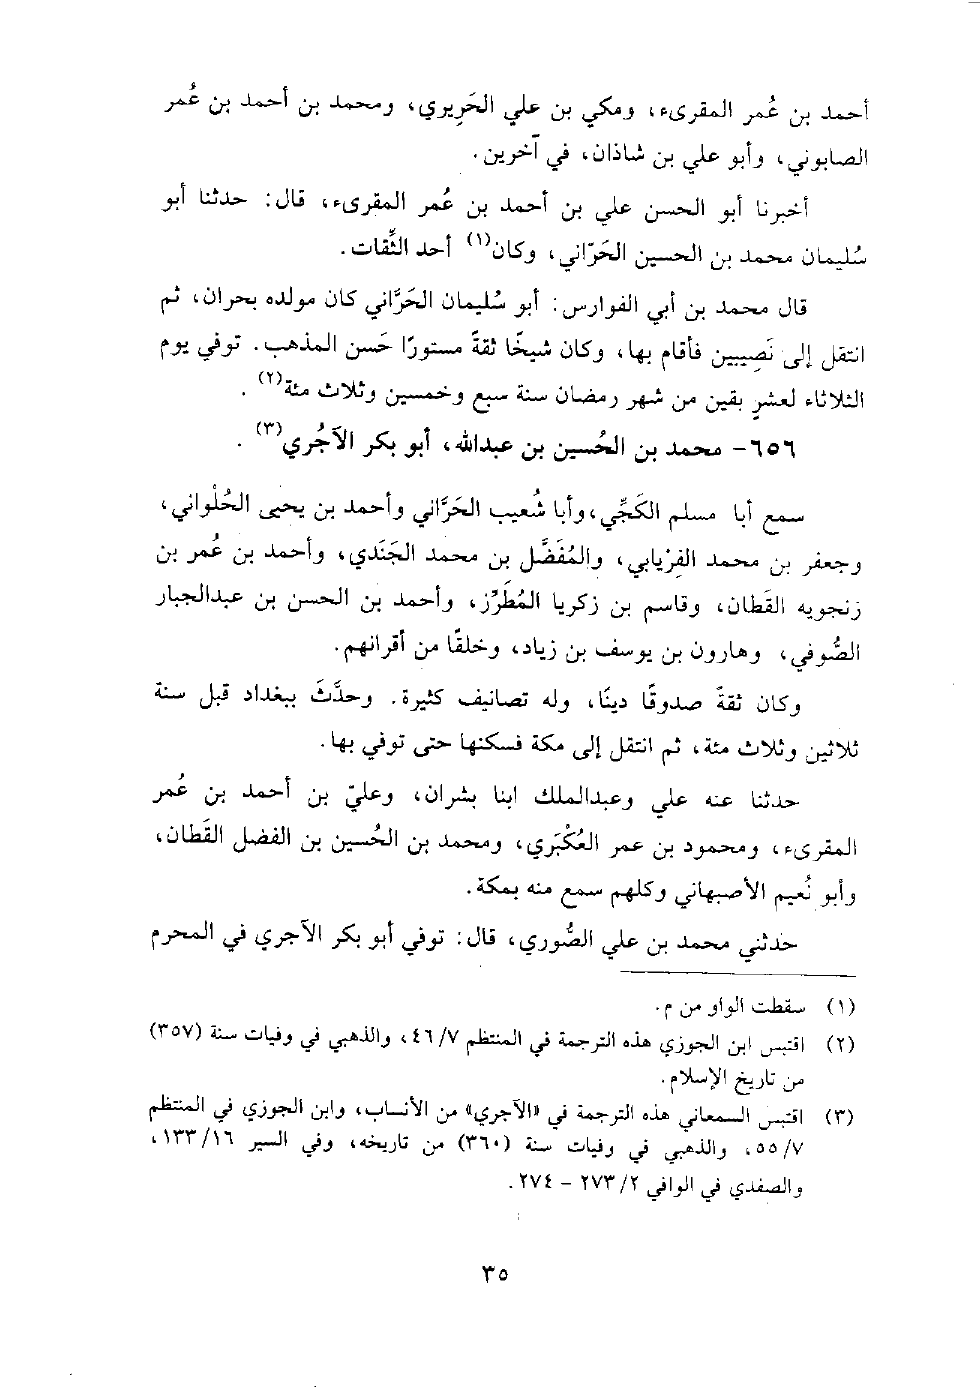 أحمد بن عُمر المقرىء، ومكي بن علي الحَرِيري، ومحمد بن أحمد بن عُمر
الصابوني، وأبو علي بن شاذان، في آخرين.
أخبرنا أبو الحسن علي بن أحمد بن عُمر المقرىء، قال: حدثنا أبو
سُليمان محمد بن الحسين الحَرّاني، وكان(١) أحد الثِّقات.
قال محمد بن أبي الفوارس: أبو سُليمان الحَرَّاني كان مولده بحران، ثم
انتقل إلى نَصِيبين فأقام بها، وكان شيخًا ثقةً مستورًا حَسن المذهب. توفي يوم
الثلاثاء لعشرٍ بقين من شهر رمضان سنة سبع وخمسين وثلاث مئة(٢).
٦٥٦- محمد بن الحُسين بن عبدالله، أبو بكر الآجُري(٣).
سمع أبا مسلم الكَجِّي، وأبا شُعيب الحَرَّاني وأحمد بن يحيى الحُلْواني،
وجعفر بن محمد الفِرْيابي، والمُفَضَّل بن محمد الجَنَدي، وأحمد بن عُمر بن
زنجويه القَطان، وقاسم بن زكريا المُطَرِّز، وأحمد بن الحسن بن عبدالجبار
الصُّوفي، وهارون بن يوسف بن زياد، وخلقًا من أقرانهم.
وكان ثقةً صدوقًا دينًا، وله تصانيف كثيرة. وحدَّثَ ببغداد قبل سنة
ثلاثين وثلاث مئة، ثم انتقل إلى مكة فسكنها حتى توفي بها.
حدثنا عنه علي وعبدالملك ابنا بشران، وعليّ بن أحمد بن عُمر
المقرىء، ومحمود بن عمر العُكْبَري، ومحمد بن الحُسين بن الفضل القَطان،
وأبو نُعيم الأصبهاني وكلهم سمع منه بمكة.
حدثني محمد بن علي الصُّوري، قال: توفي أبو بكر الآجري في المحرم
(١) سقطت الواو من م.
(٢) اقتبس ابن الجوزي هذه الترجمة في المنتظم ٤٦/٧، والذهبي في وفيات سنة (٣٥٧)
من تاريخ الإسلام.
(٣) اقتبس السمعاني هذه الترجمة في «الآجري» من الأنساب، وابن الجوزي في المنتظم
٥٥/٧، والذهبي في وفيات سنة (٣٦٠) من تاريخه، وفي السير ١٣٣/١٦،
والصفدي في الوافي ٢٧٣/٢ - ٢٧٤.
٣٥